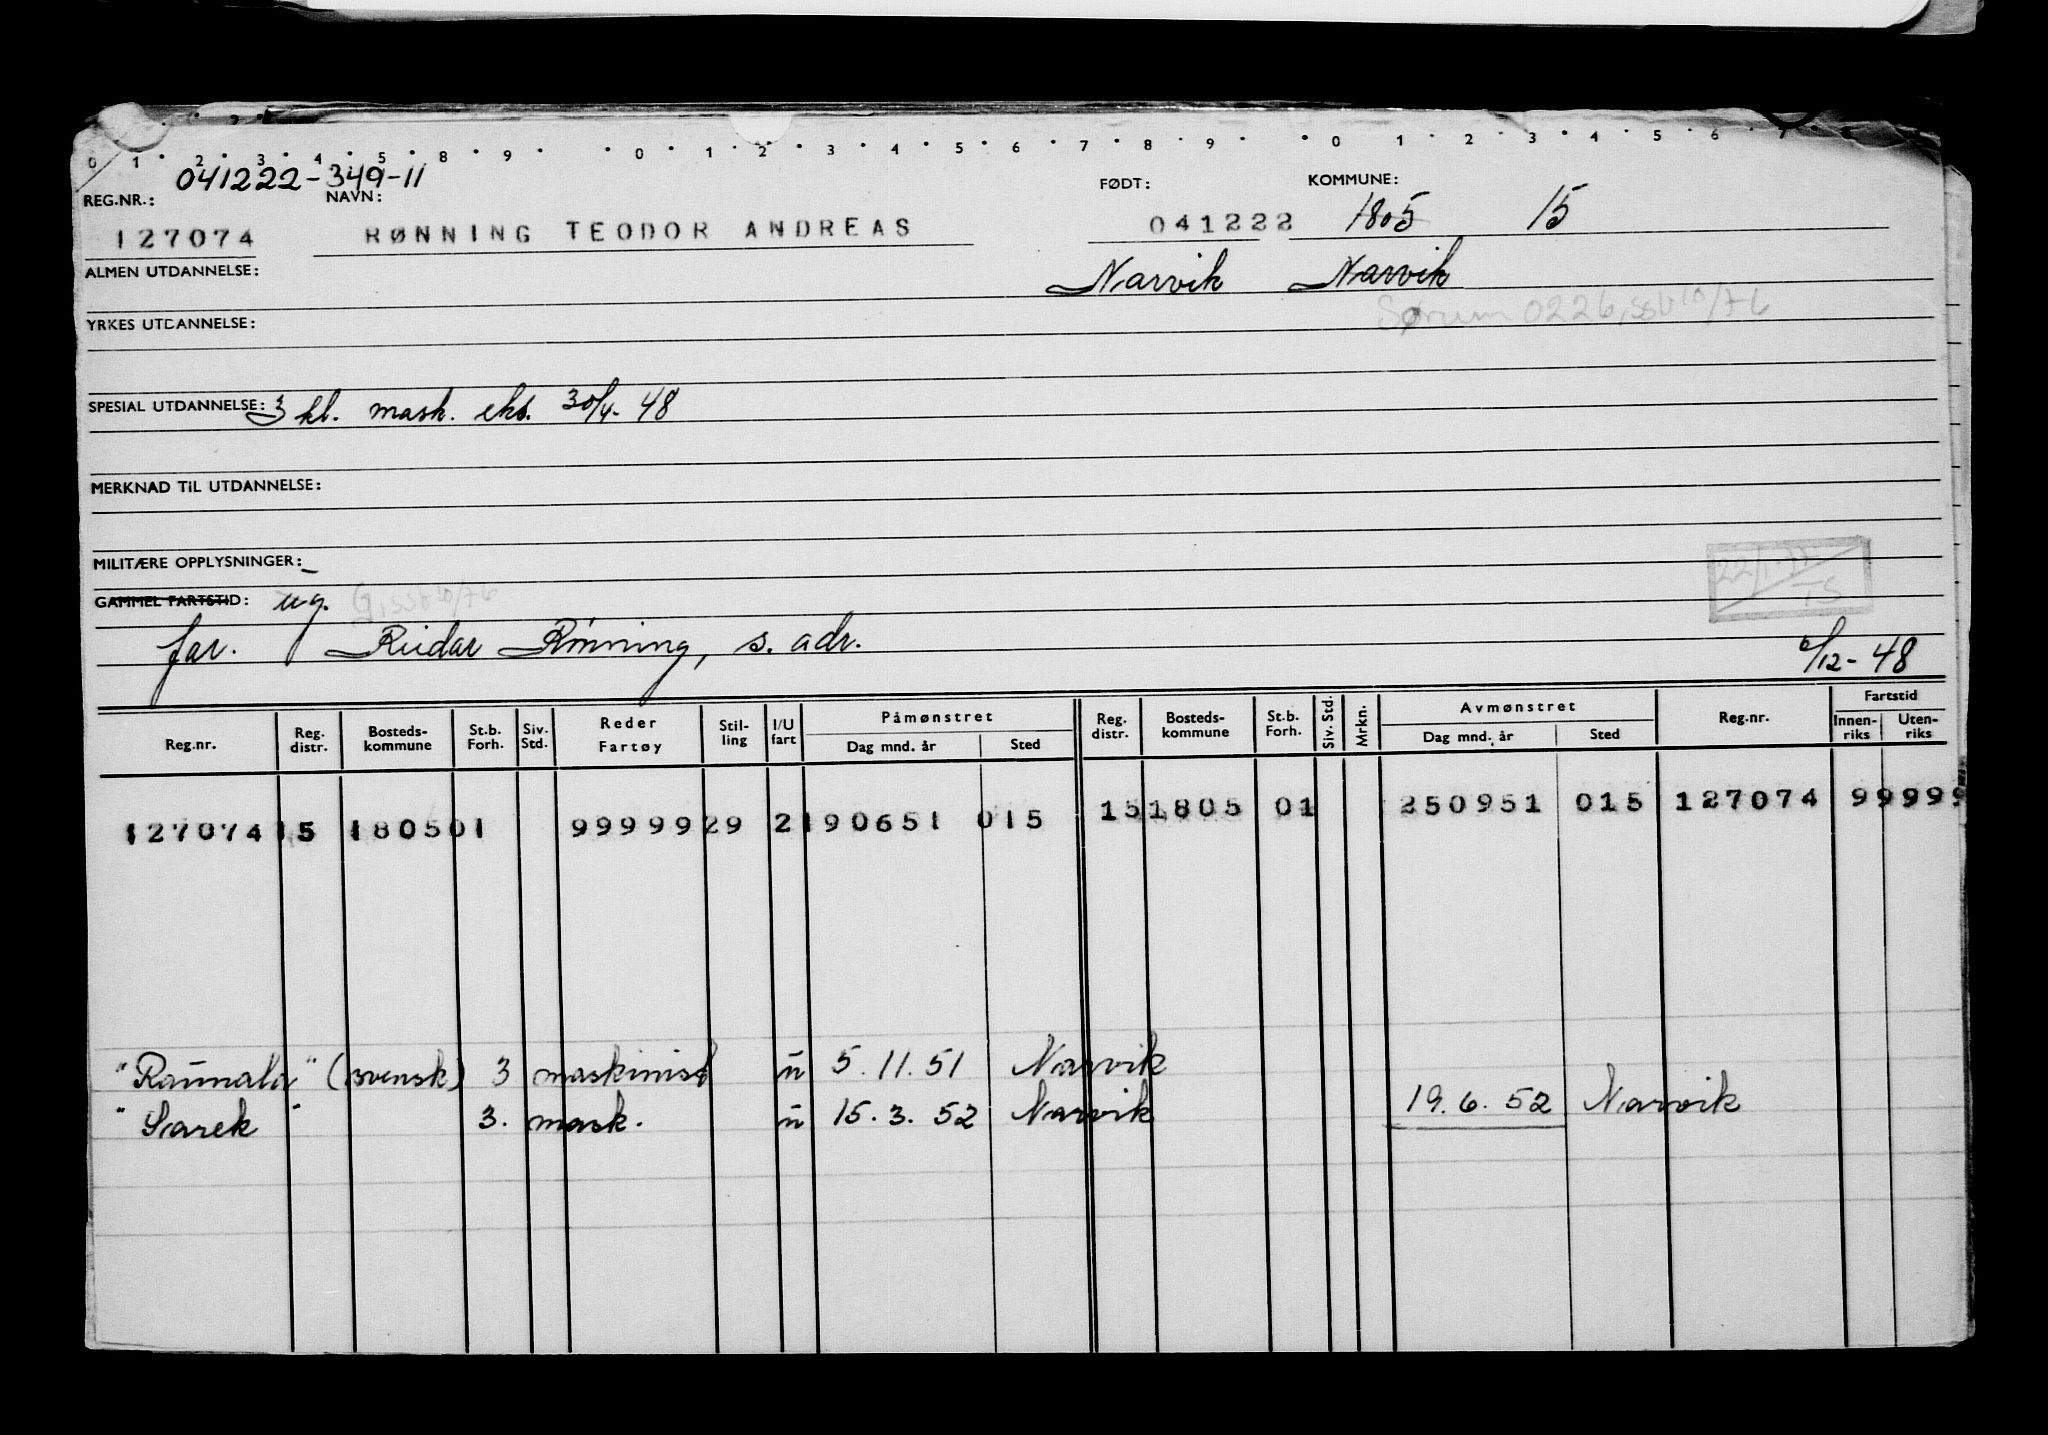 0 1 2 3 4 5 8 9 0 1 2 3 4 5 6 7 8 9 0 1 2 3 4 5 6 7
041222-349-11
REG.NR.: NAVN: FØDT: KOMMUNE:
127074 RØNNING TEODOR ANDREAS 041222 1805 15
ALMEN UTDANNELSE: Narvik Narvik
Sørum 0226, ssb 10/76
YRKES UTDANNELSE:
SPESIAL UTDANNELSE: 3 kl. mask. eks. 30/4-48
MERKNAD TIL UTDANNELSE:
MILITÆRE OPPLYSNINGER: -
GAMMEL FARTSTID: ug. G, ssb 10/76
TS
far. Reidar Rønning, s. adr.
/12-48
Reg.nr. Reg. distr. Bosteds-kommune St.b. Forh. Siv. Std. Reder Fartøy Stil-ling I/U fart Påmønstret Dag mnd. år Sted Reg. distr. Bosteds-kommune St.b. Forh. Siv. Std. Mrkn. Avmønstret Dag mnd. år Sted Reg.nr. Fartstid Innen-riks Uten-riks
127074 15 1805 01 99999 29 2 190651 015 15 1805 01 250951 015 127074 99999
"Raunala" (svensk) 3 maskinist u 5.11.51 Narvik
"Sarek" 3. mask. u 15.3.52 Narvik 19.6.52 Narvik